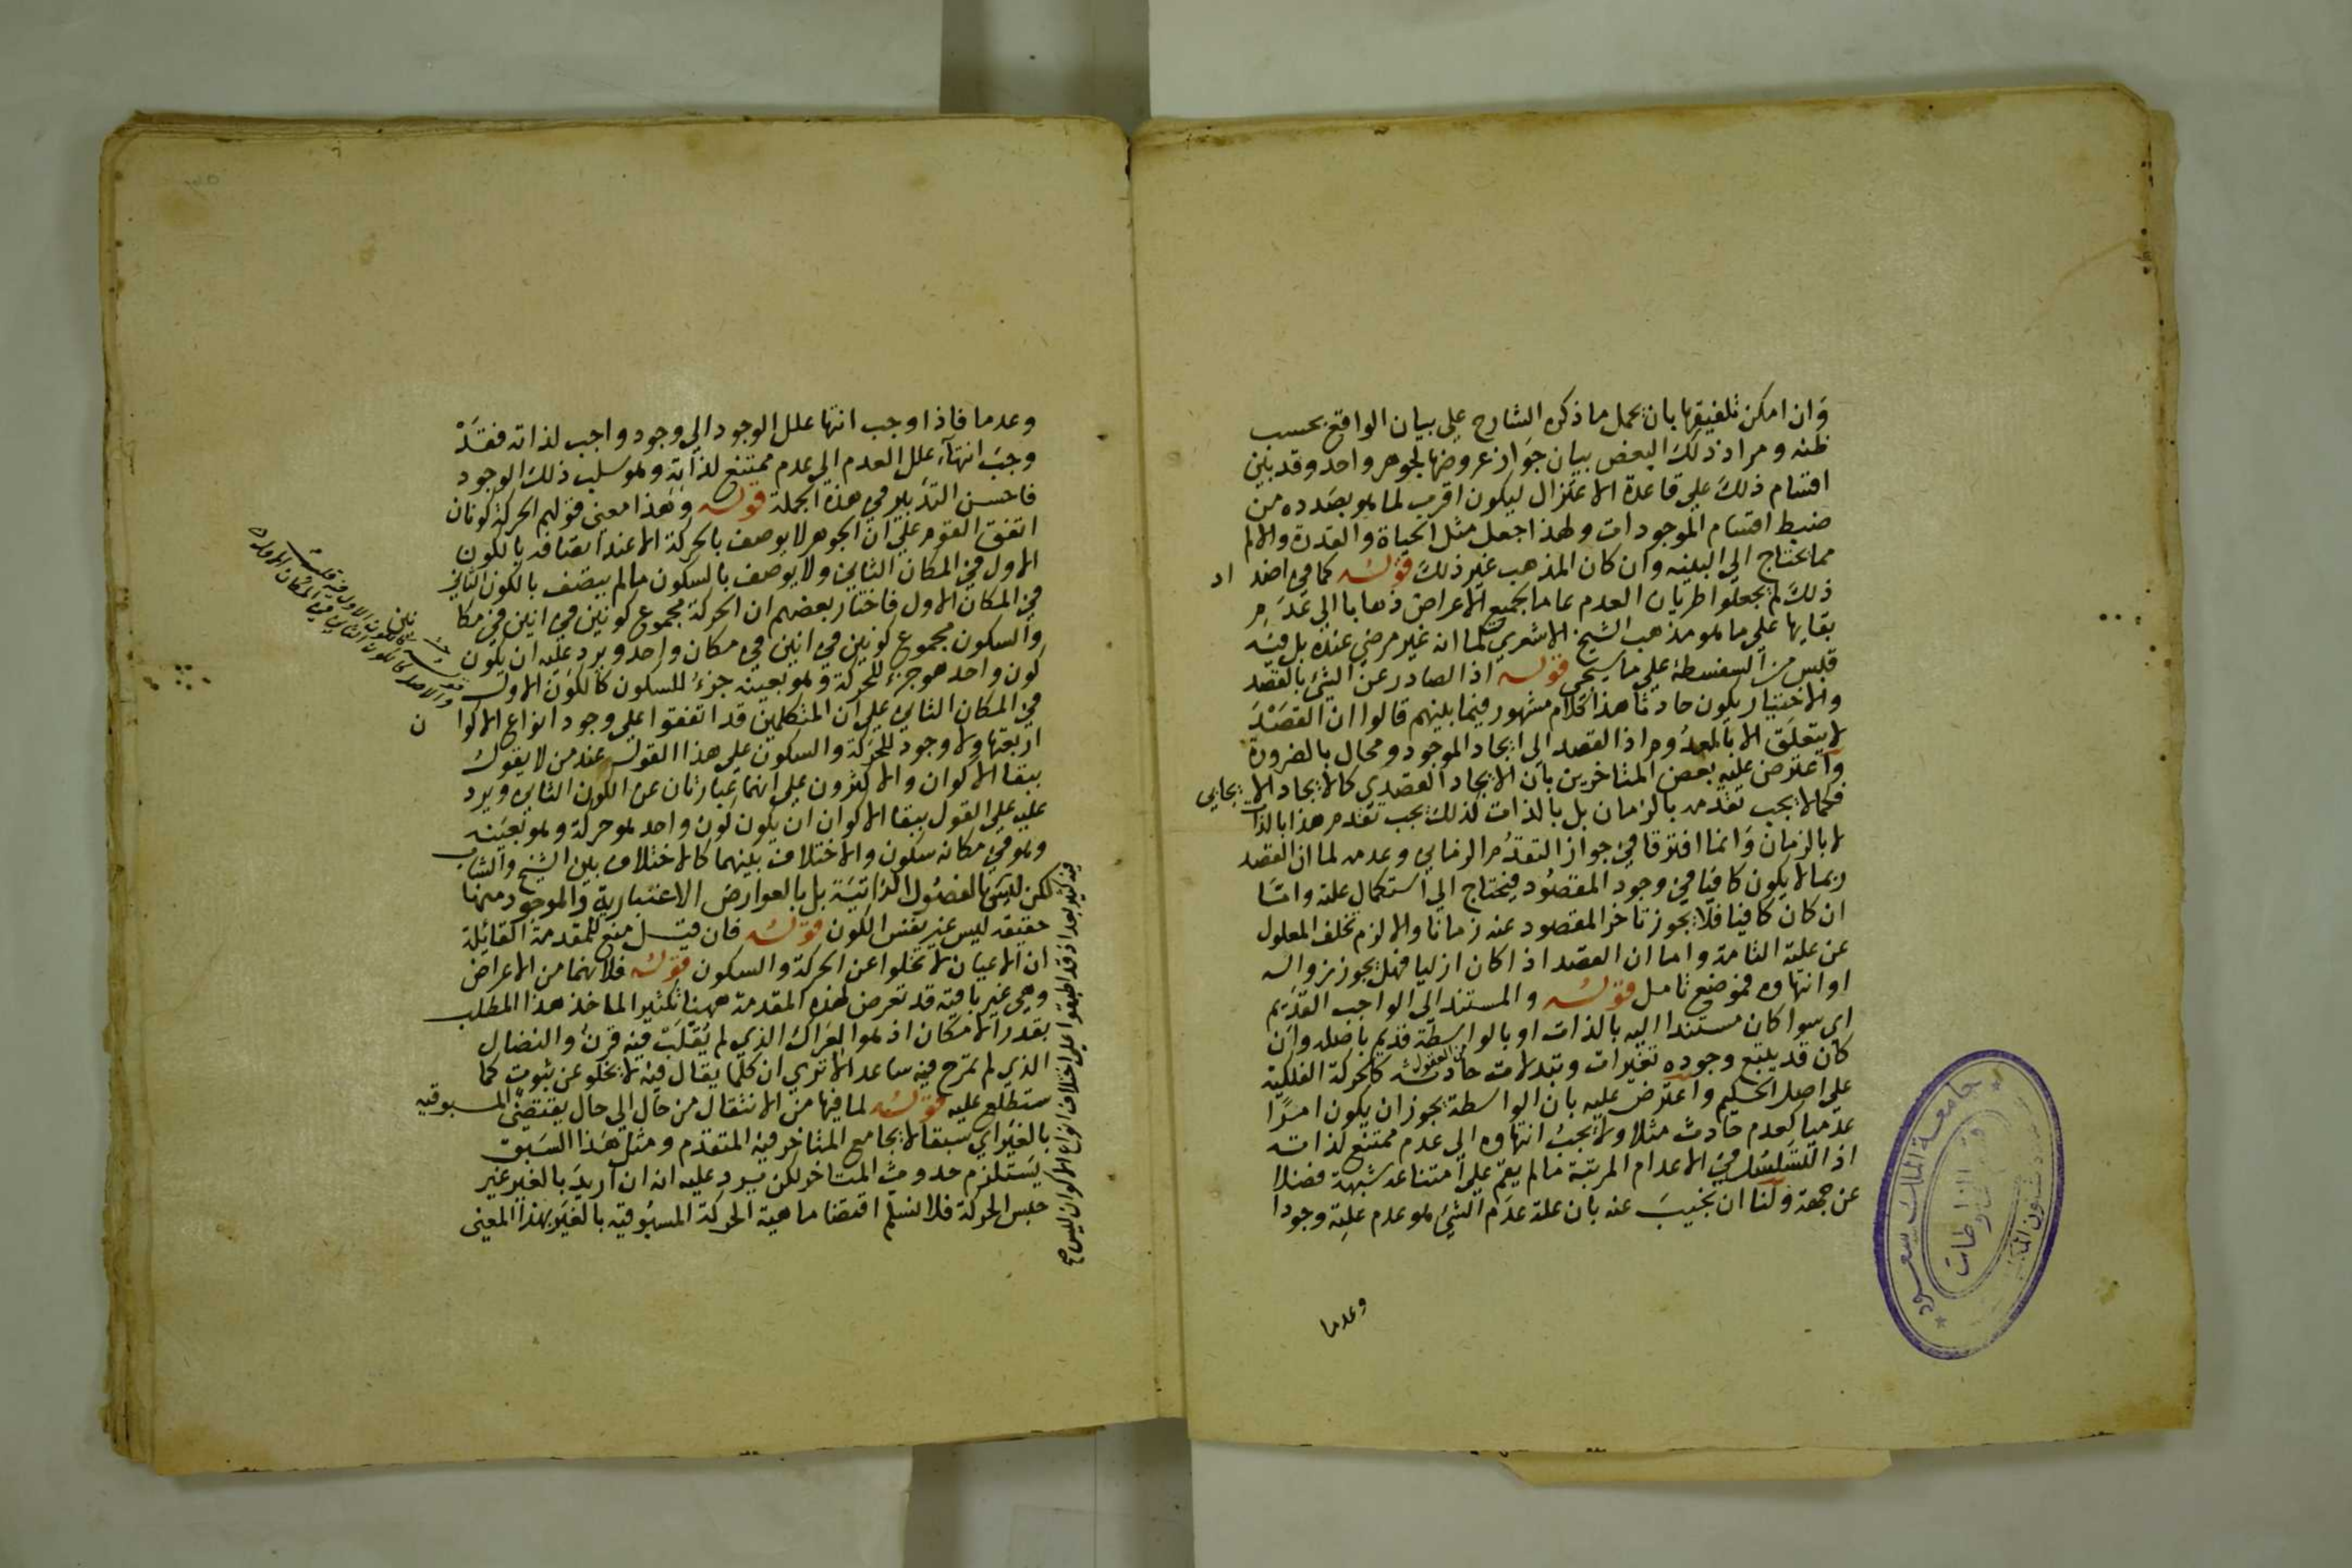 وان امكن تلفيقها بان يحمل ما ذكره الشارح على بيان الواقع بحسب
ظنه ومراد ذلك البعض بيان جواز عروضها لجوهر واحد وقد بنين
اقسام ذلك على قاعدة الاعتزال ليكون اقرب لما هو بصدده من
ضبط اقسام الموجودات ولهذا جعل مثل الحياة والقدرة والالم
مما يحتاج الى البنية وان كان المذهب غير ذلك قوله كما في اضد اد
ذلك لم يجعلوا طريان العدم عاما لجميع الاعراض ذهابا الى عدم
بقايها على ما هو مذهب الشيخ الاشعري لما انه غير مرضي عنده بل فيه
قلبس من السفسطة على ما سيجي قوله اذ الصادر عن الشئ بالقصد
والاختيار يكون حادثا هذا كلام مشهور فيما بينهم قالوا ان القصد
لا يتعلق الا بالمعدوم اذ القصد الى ايجاد الموجود محال بالضرورة
واعترض عليه بعض المتاخرين بان الايجاد القصدي كالايجاد الايجابي
فكما لا يجب تقدمه بالزمان بل بالذات لذلك يجب تقدم هذا بالذات
لا بالزمان وانما افترقا في جواز التقدم الزماني وعدمه لما ان القصد
ربما لا يكون كافيا في وجود المقصود فيحتاج الى استكمال علته واما
ان كان كافيا فلا يجوز تاخر المقصود عنه زمانا والا لزم تخلف المعلول
عن علته التامة واما ان القصد اذا كان ازليا فهل يجوز زواله
او انتهاوه فموضع تامل قوله والمستند الى الواجب القديم
اي سوا كان مستندا اليه بالذات او بالواسطة قديم باصله وان
كان قد يتبع وجوده تغيرات وتبدلات حادثه كالحركة الفلكية
على اصل الحكيم واعترض عليه بان الواسطة يجوز ان يكون امرا
عدميا كعدم حادث مثلا ولا يجب انتهاوه الى عدم ممتنع لذاته
اذ التسلسل في الاعدام المرتبة مالم يقم على امتناعه شبهة فضلا
عن حجة ولنا ان نجيب عنه بان علة عدم الشئ هو عدم علته وجودا
وعدما
جامعة الملك سعود
وعدما فاذا وجب انتها علل الوجود الى وجود واجب لذاته فقد
وجب انتهاء علل العدم الى عدم ممتنع لذاته وهو سلب ذلك الوجود
فاحسن التدبر في هذه الجملة قوله وهذا معنى قولهم الحركة كونان
اتفق القوم على ان الجوهر لا يوصف بالحركة الا عند اتصافه بالكون
الاول في المكان الثاني ولا يوصف بالسكون مالم يتصف بالكون الثاني
في المكان الاول فاختار بعضهم ان الحركة مجموع كونين في انين في مكا نين
والسكون مجموع كونين في انين في مكان واحد ويرد عليه ان يكون
كون واحد هو جزء للحركة وهو بعينه جزء للسكون كالكون الاول
في المكان الثاني على ان المتكلمين قد اتفقوا على وجود انواع الاكوا ن
اربعتها ولا وجود للحركة والسكون على هذا القول عند من لا يقول
ببقا الاكوان والاكثرون على انهما عبارتان عن الكون الثاني ويرد
عليه على القول ببقا الاكوان ان يكون كون واحد هو حركة وهو بعينه
وهو في مكانه سكون والاختلاف بينهما كالاختلاف بين الشيخ والشاب
لكن ليس بالفصول الذاتية بل بالعوارض الاعتبارية والموجود منها
حقيقه ليس غير نفس الكون قوله فان قيل منع للمقدمة القائلة
ان الاعيان لا تخلوا عن الحركة والسكون قوله فلانهما من الاعراض
وهي غير باقية قد تعرض لهذه المقدمة ههنا تكثيرا لماخذ هذا المطلب
بقدر الامكان اذ هو العراك الذي لم يقلب فيه قرن والنضال
الذي لم تمرح فيه ساعد الا ترى ان كلما يقال فيه لا يخلو عن ثبوت كما
ستطلع عليه قوله لما فيها من الانتقال من حال الى حال يقتضي المسبوقيه
بالغير اي سبقا لا يجامع المتاخر فيه المتقدم ومثل هذا السبق
يستلزم حدوث المتاخر لكن يرد عليه انه ان اريد بالغير غير
جنس الحركة فلا نسلم اقتضا ماهية الحركة المسبوقية بالغير بهذا المعنى